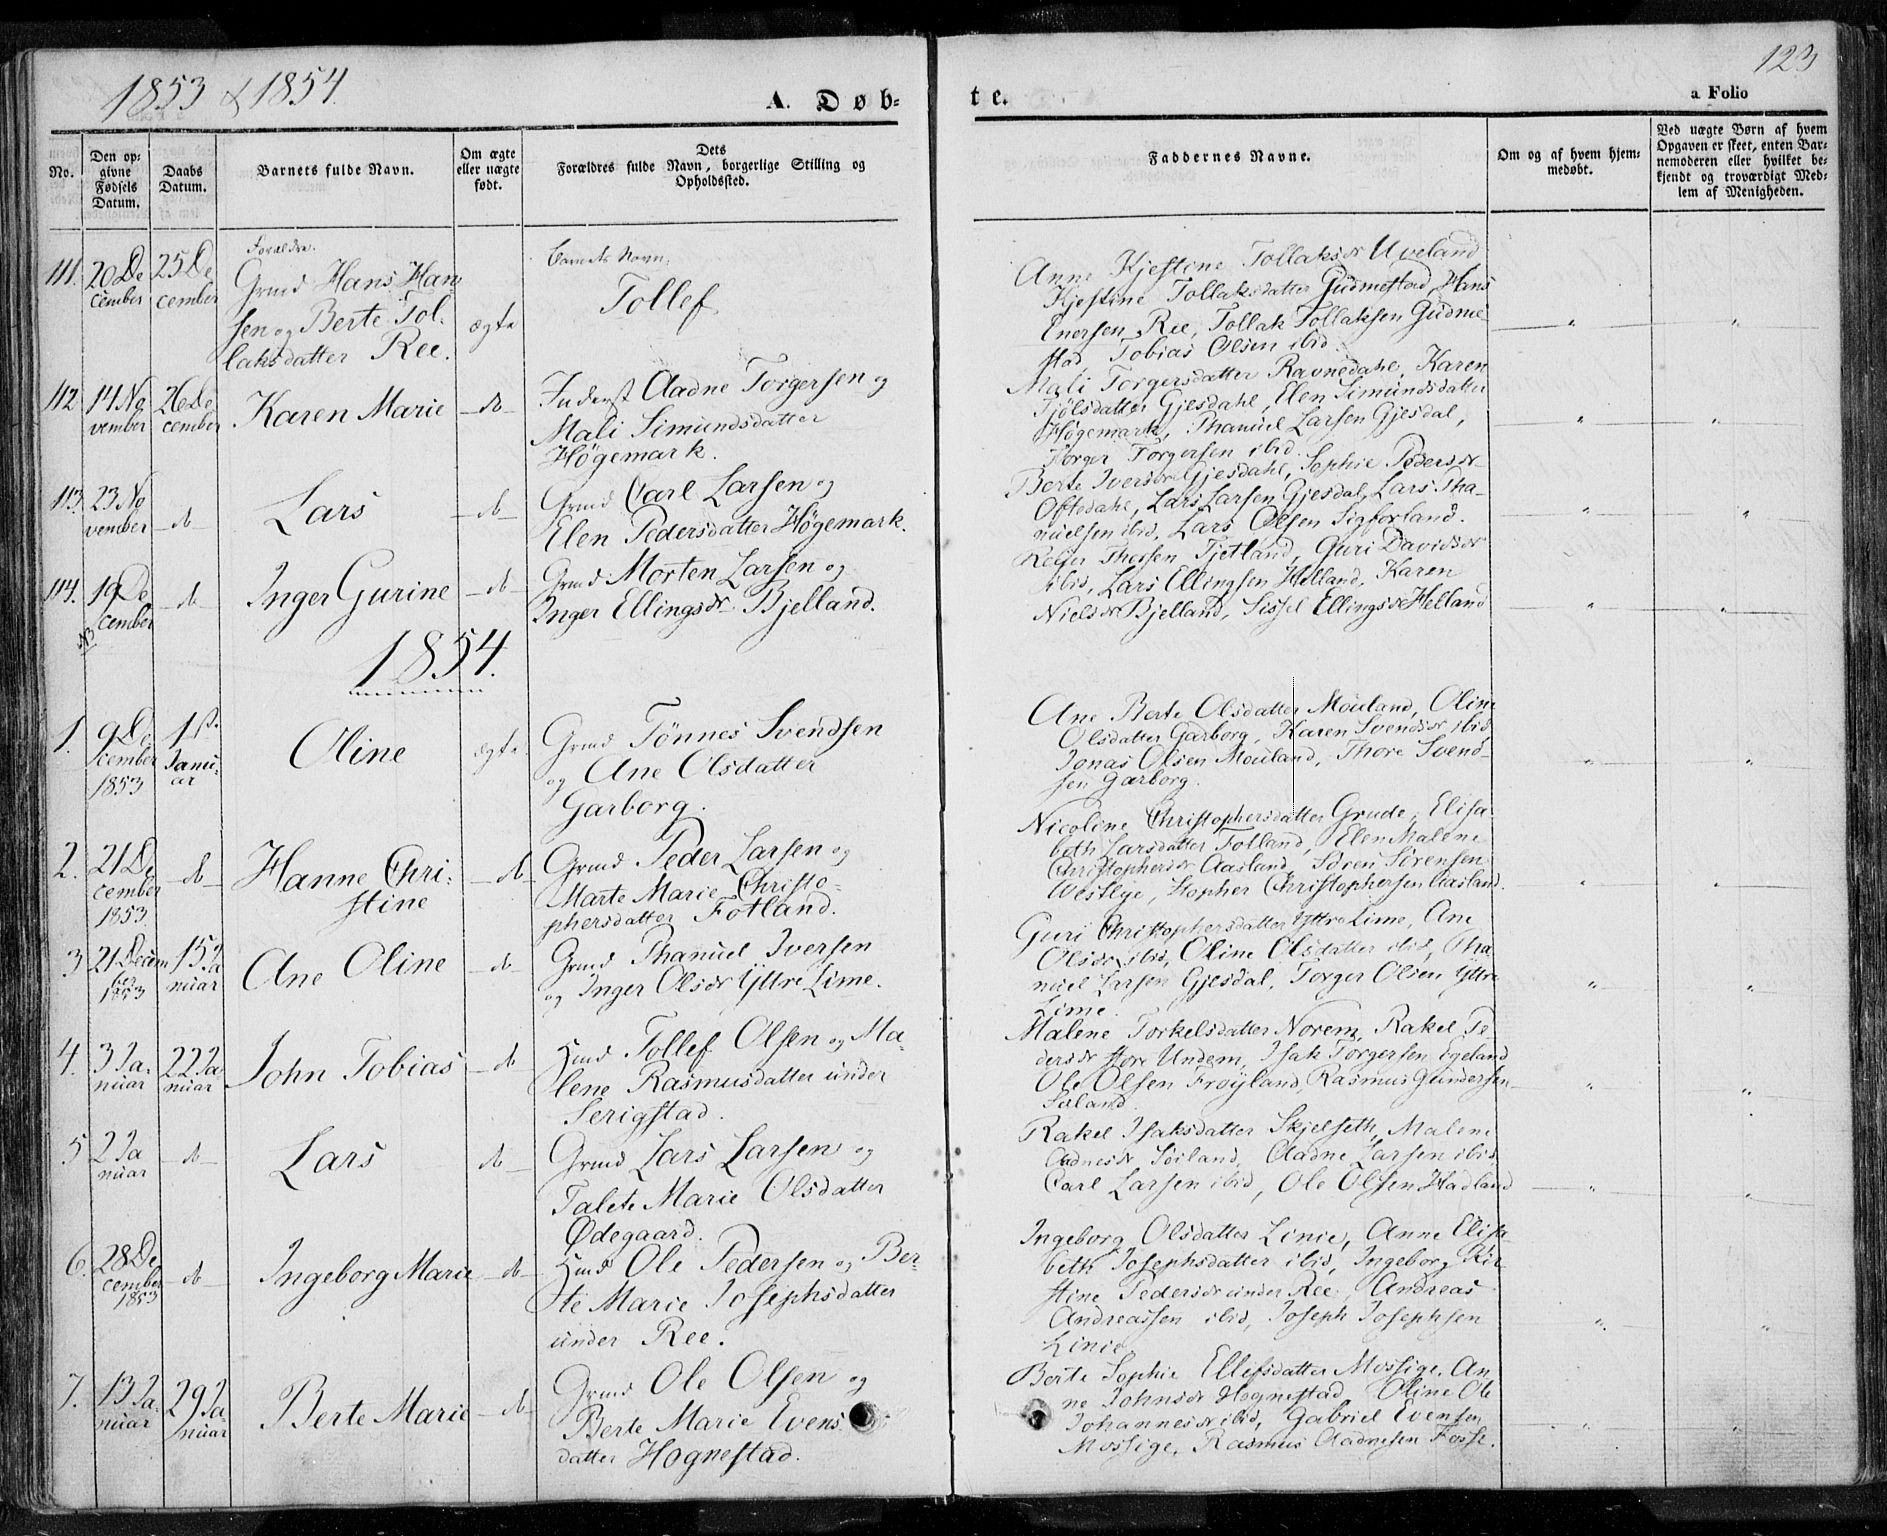 1853 & 1854.
A. Døb-
te.
123
a Folio
No.
Den op-
givne
Fødsels
Datum.
Daabs
Datum.
Barnets fulde Navn.
Om ægte
eller uægte
født.
Dets
Forældres fulde Navn, borgerlige Stilling og
Opholdssted.
Faddernes Navne.
Om og af hvem hjem-
medøbt.
Ved uægte Børn af hvem
Opgaven er skeet, enten Bar-
nemoderen eller hvilket be-
kjendt og troværdigt Med-
lem af Menigheden.
111.
20 De
cember
25 De
cember
Forældre.
Grmd Hans Han
sen og Berte Tol-
laksdatter Ree.
ægte
Barnets Navn.
Tollef
Anne Kjestine Tollaksdr Uveland
Kjestine Tollaksdatter Gudmestad, Hans
Enersen Ree, Tollak Tollaksen Gudme
stad Tobias Olsen ibid.
112
14 No
vember
26 De
cember
Karen Marie
do
Inderst Aadne Torgersen og
Mali Simundsdatter
Høgemark.
Mali Torgersdatter Ravnedahl, Karen
Tjølsdatter Gjesdahl, Elen Simundsdatter
Høgemark, Thanuel Larsen Gjesdal,
Torger Torgersen ibid.
113.
23 No
vember
do
Lars
do
Grmd Carl Larsen og
Elen Pedersdatter Høgemark.
Berte Iversdr Gjesdahl, Sophie Pedersdr
Oftedahl, Lars Larsen Gjesdal, Lars Tha-
nuelsen ibid, Lars Olsen Sigforland.
114.
19 De
cember
do
Inger Gurine
do
Grmd Morten Larsen og
Inger Ellingsdr Bjelland.
Thossen Tjetland, Guri Davidsdr
ibid, Lars Ellingsen Helland, Karen
Nielsdr Bjelland, Sissel Ellingsdr Helland
1854.
1.
9 De
cember
1853
1st.
Janu-
ar
Oline
ægte
Grmd Tønnes Svendsen
og Ane Olsdatter
Garborg.
Ane Berte Olsdatter Mouland, Oline
Olsdatter Garborg, Karen Svendsdr ibid
Jonas Olsen Mouland, Thore Svend-
sen Garborg.
2.
21 De
cember
1853
do
Hanne Chri-
stine
do
Grmd Peder Larsen og
Marte Marie Christo-
phersdatter Fotland.
Nicoline Christophersdatter Grude, Elisa-
beth Larsdatter Fotland, Elen Malene
Christophersdr Aasland, Søren Sørensen
Westlye, Stopher Christophersen Aasland.
3
21 Decem
ber
1853
15 Ja
nuar
Ane Oline
do
Grmd Thanuel Iversen
og Inger Olsdr Yttre Lime.
Guri Christophersdatter Yttre Lime, Ane
Olsdr ibid, Oline Olsdatter ibid, Tha
nuel Larsen Gjesdal, Torger Olsen Yttre
Lime.
4.
3 Ja-
nuar
22 Ja
nuar
John Tobias
do
Hmd Tollef Olsen og Ma-
lene Rasmusdatter under
Serigstad.
Malene Torkelsdatter Norem, Rakel Pe
dersdr store Undem, Isak Torgersen Egeland
Ole Olsen Frøyland, Rasmus Gundersen
Soland.
5
2 Ja
nuar
do
Lars
do
Grmd Lars Larsen og
Talete Marie Olsdatter
Ødegaard.
Rakel Isaksdatter Skjelseth, Malene
Aadnesdr Søiland, Aadne Larsen ibid
Carl Larsen ibid, Ole Olsen Hadland
6.
28 De
cember
1853
do
Ingeborg Marie
do
Hmd Ole Pedersen og Ber-
te Marie Josephsdatter
under Ree.
Ingeborg Olsdatter Linie, Anne Elisa
beth Josephsdatter ibid, Ingeborg Kir
stine Pedersdr under Ree, Andreas
Andreassen ibid, Joseph Josephsen
Linie.
7.
13 Ja-
nuar
29 Ja-
nuar
Berte Marie
do
Grmd Ole Olsen og
Berte Marie Evens
datter Hognestad.
Berte Sophie Ellefsdatter Mossige, An
ne Johnsdr Hognestad, Oline Ole
Johannesdr ibid, Gabriel Evensen
Mossige, Rasmus Aadnesen Fosse.